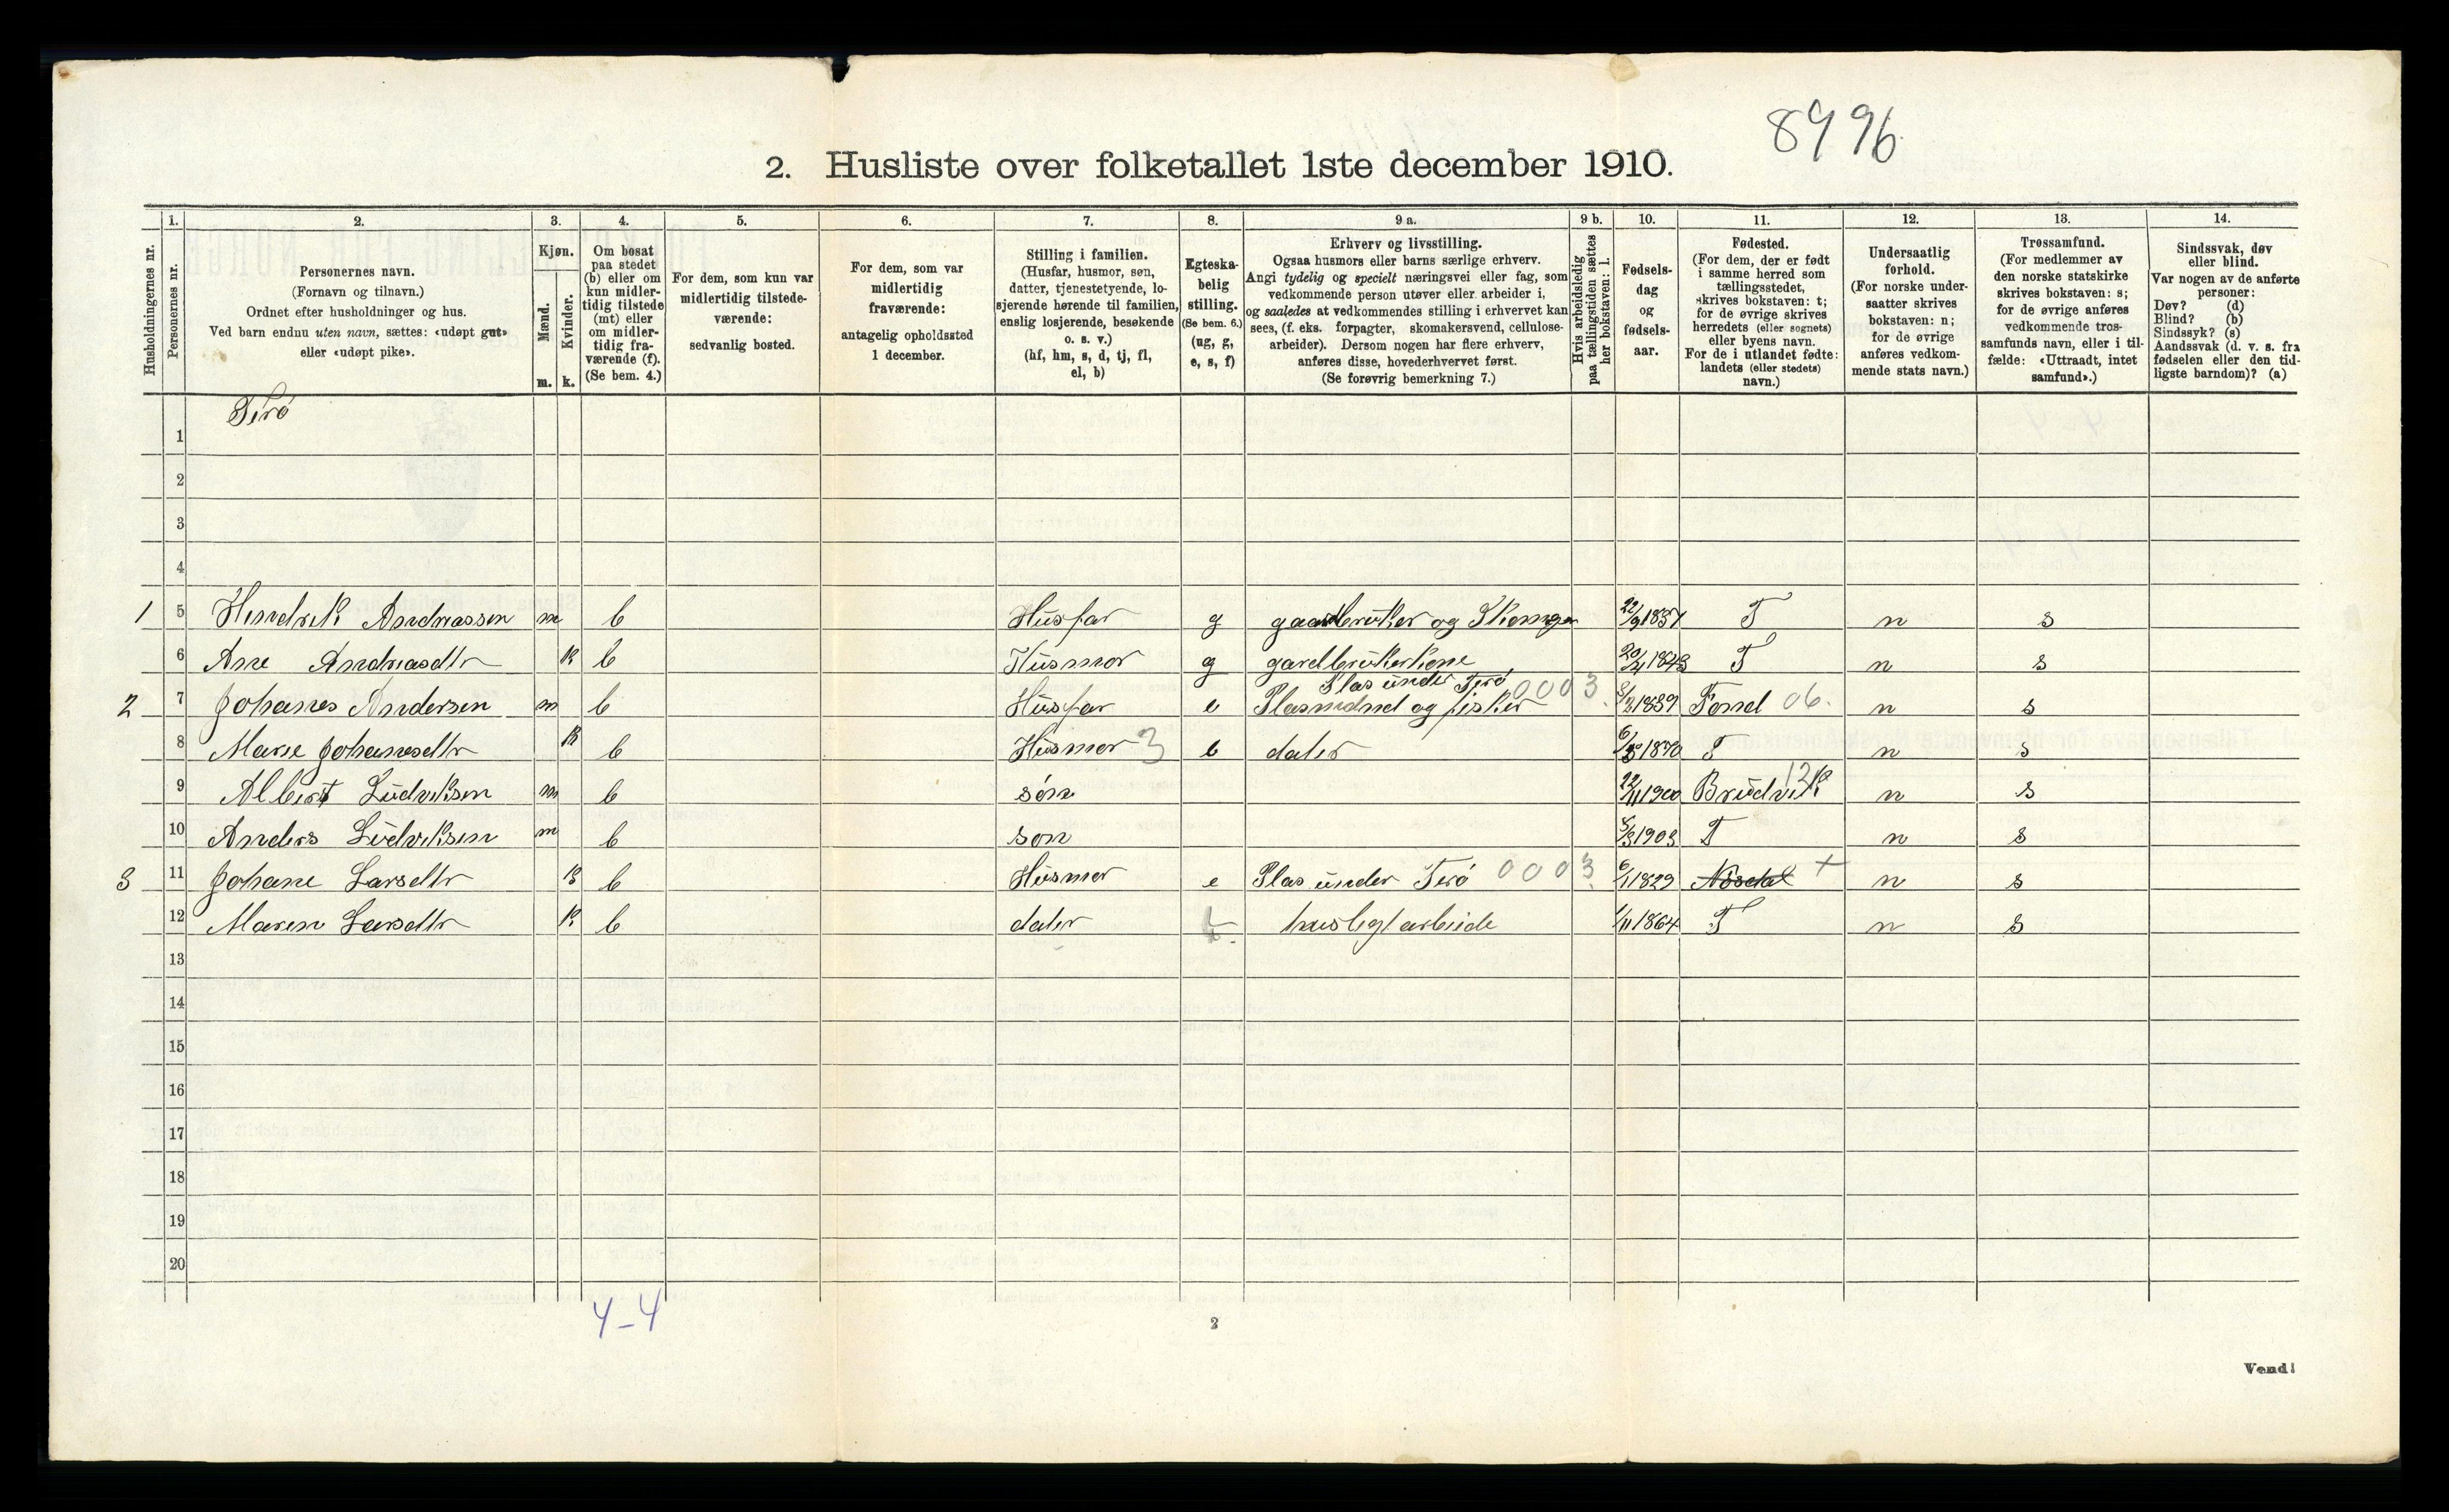 8996
2. Husliste over folketallet 1ste december 1910.
1. 2. 3. 4. 5. 6. 7. 8. 9 a. 9 b. 10. 11. 12. 13. 14.
Husholdningernes nr.
Personernes nr.
Personernes navn.
(Fornavn og tilnavn.)
Ordnet efter husholdninger og hus.
Ved barn endnu uten navn, sættes: «udøpt gut»
eller «udøpt pike».
Kjøn.
Mænd.
Kvinder.
m. k.
Om bosat
paa stedet
(b) eller om
kun midler-
tidig tilstede
(mt) eller
om midler-
tidig fra-
værende (f).
(Se bem. 4.)
For dem, som kun var
midlertidig tilstede-
værende:
sedvanlig bosted.
For dem, som var
midlertidig
fraværende:
antagelig opholdssted
1 december.
Stilling i familien.
(Husfar, husmor, søn,
datter, tjenestetyende, lo-
sjerende hørende til familien,
enslig losjerende, besøkende
o. s. v.)
(hf, hm, s, d, tj, fl,
el, b)
Egteska-
belig
stilling.
(Se bem. 6.)
(ug, g,
e, s, f)
Erhverv og livsstilling.
Ogsaa husmors eller barns særlige erhverv.
Angi tydelig og specielt næringsvei eller fag, som
vedkommende person utøver eller arbeider i,
og saaledes at vedkommendes stilling i erhvervet kan
sees, (f. eks. forpagter, skomakersvend, cellulose-
arbeider). Dersom nogen har flere erhverv,
anføres disse, hovederhvervet først.
(Se forøvrig bemerkning 7.)
Hvis arbeidsledig
paa tællingstiden sættes
her bokstaven: l.
Fødsels-
dag
og
fødsels-
aar.
Fødested.
(For dem, der er født
i samme herred som
tællingsstedet,
skrives bokstaven: t;
for de øvrige skrives
herredets (eller sognets)
eller byens navn.
For de i utlandet fødte:
landets (eller stedets)
navn.)
Undersaatlig
forhold.
(For norske under-
saatter skrives
bokstaven: n;
for de øvrige
anføres vedkom-
mende stats navn.)
Trossamfund.
(For medlemmer av
den norske statskirke
skrives bokstaven: s;
for de øvrige anføres
vedkommende tros-
samfunds navn, eller i til-
fælde: «Uttraadt, intet
samfund».)
Sindssvak, døv
eller blind.
Var nogen av de anførte
personer:
Døv? (d)
Blind? (b)
Sindssyk? (s)
Aandssvak (d. v. s. fra
fødselen eller den tid-
ligste barndom)? (a)
Terø
1
2
3
4
1 5 Hendrik Andreassen m b Husfar g gaardbruker og 22/9 1837 T n s
6 Ane Andreasdtr k b Husmor g gardbrukerkone 1843 T n s
Plas under Terø 000 3.
2 7 Johanes Andersen m b Husfar e Plasmand og fisker 1839 06. n s
8 Marie Johanesdtr k b Husmor 3 e dater 1870 T n s
9 Albert Ludviksen m b søn 22/11 1900 Brudvik 12 n s
10 Anders Ludviksen m b søn 1903 T n s
3 11 Johane Larsdtr k b Husmor e Plas under Terø 000 3. 6/1 1829 + n s
12 Maren Larsdtr k b dater husligt arbeide 1/11 1864 T n s
13
14
15
16
17
18
19
20
4-4
2
Vend!